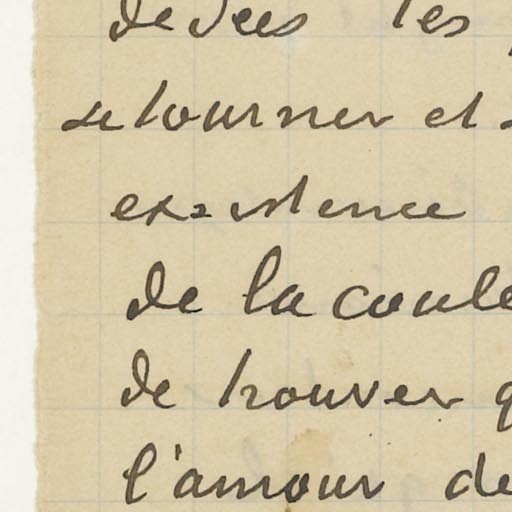 les
se tourner et
existence
de la coule
de trouver q
l'amour de